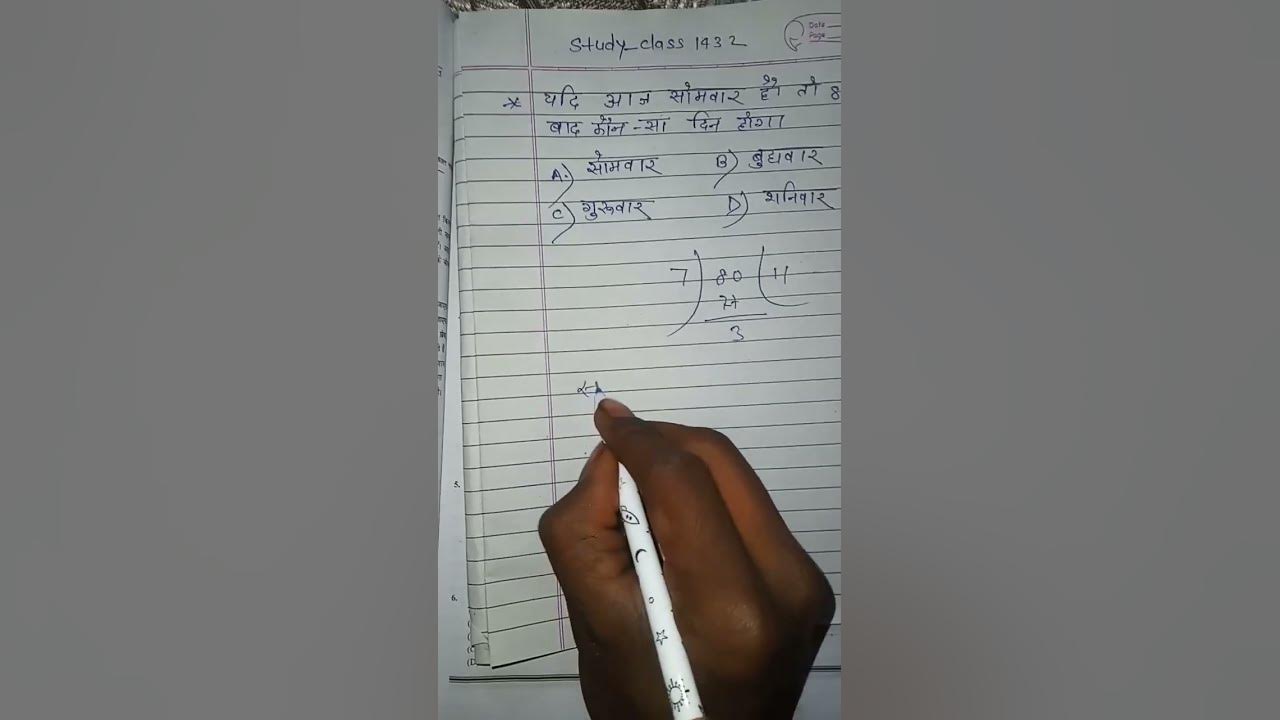 Study_class 1432
Date
Page
* यदि आज सोमवार है तो 8
बाद कौन-सा दिन होगा
A.) सोमवार B) बुधवार
C) गुरूवार D) शनिवार
7) 80 (11
77
3
5.
6.